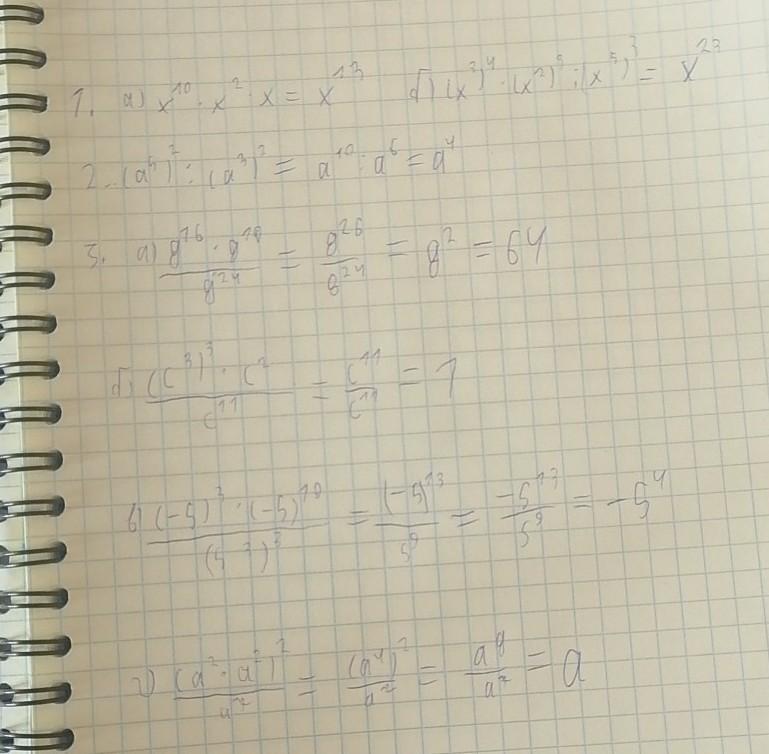 1. а) x¹⁰ · x² · x = x¹³ б) (x³)⁴ · (x²)⁹ : (x⁵)³ = x²³
2. (a⁵)² : (a³)² = a¹⁰ : a⁶ = a⁴
3. а) 8¹⁶ · 8¹⁰ / 8²⁴ = 8²⁶ / 8²⁴ = 8² = 64
б) (c³)³ · c² / c¹¹ = c¹¹ / c¹¹ = 1
в) (-5)³ · (-5)¹⁰ / (5³)³ = (-5)¹³ / 5⁹ = -5¹³ / 5⁹ = -5⁴
г) (a² · a²)² / a⁷ = (a⁴)² / a⁷ = a⁸ / a⁷ = a